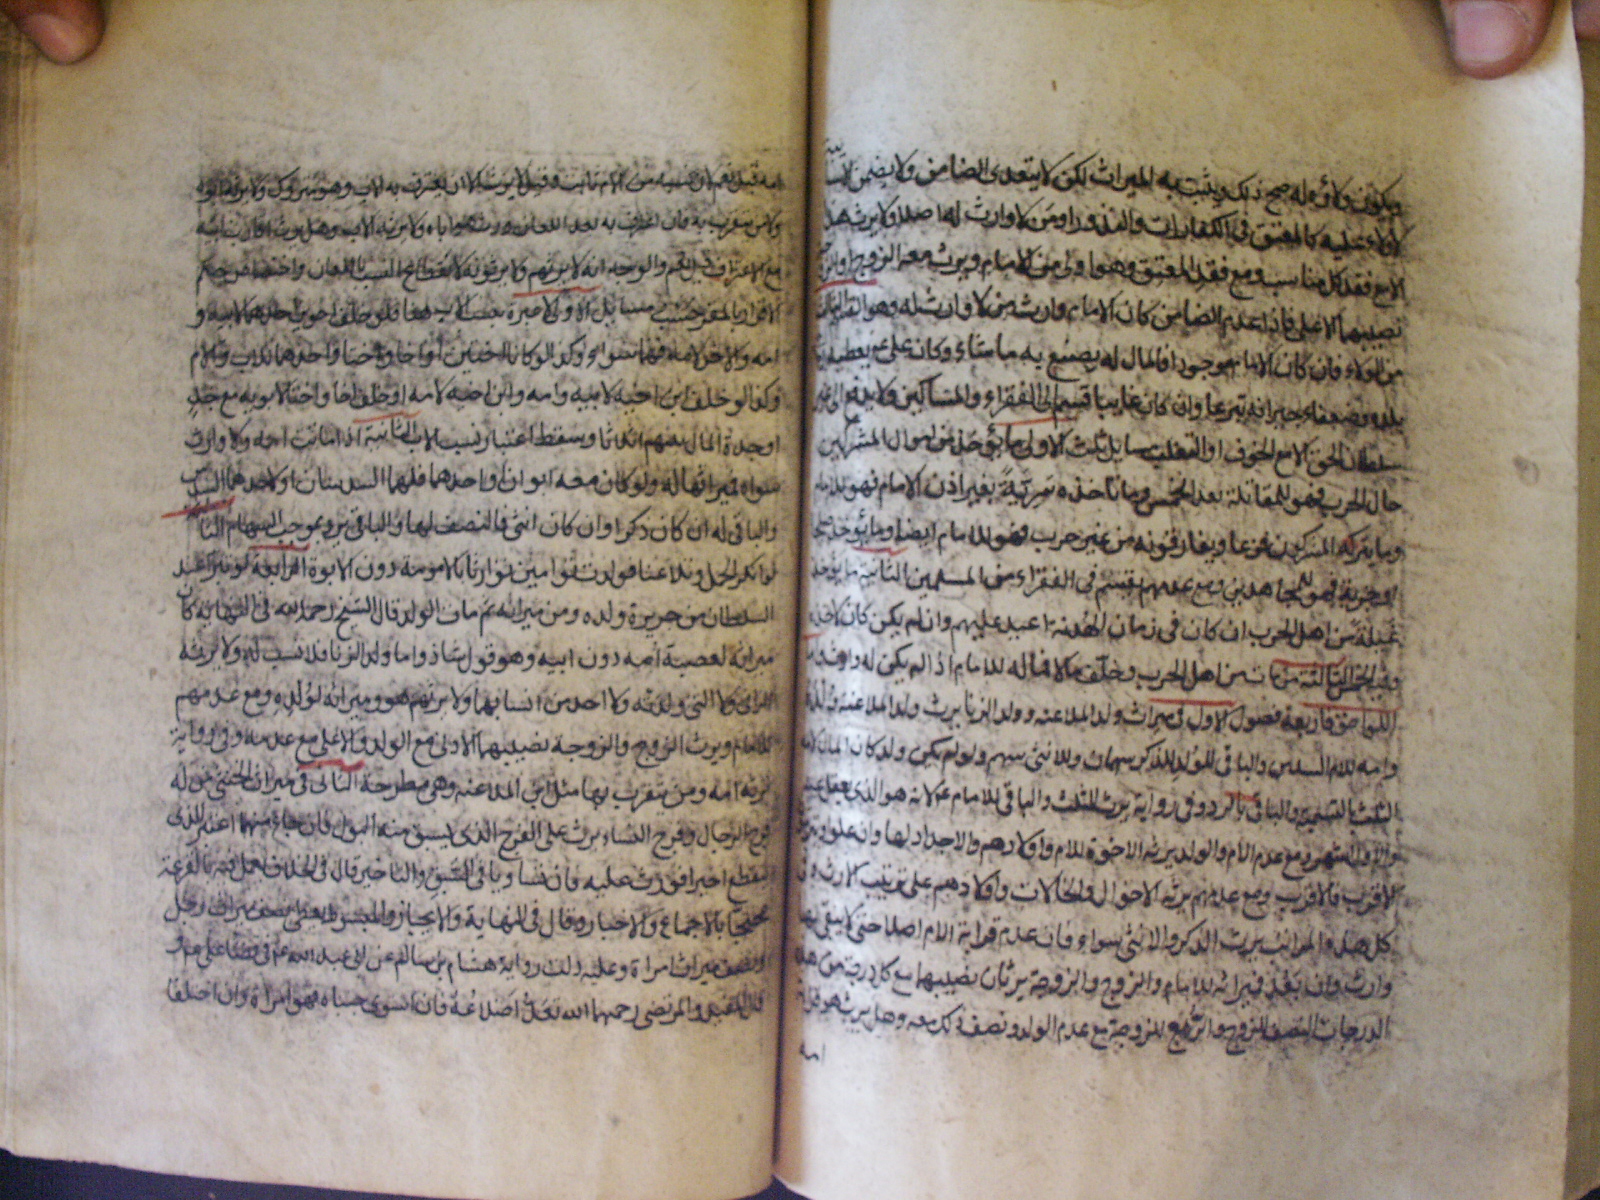 ويكون ولاؤه له صح ذلك ويثبت به الميراث لكن لا يتعدى الضامن ولا يضمن الا سائبة
لا ولاء عليه كالمعتق في الكفارات والنذور او من لا وارث له اصلا ولا يرث هذا
الا مع فقد كل مناسب ومع فقد المعتق وهو اولى من الامام ويرث معه الزوج والزوجة
نصيبهما الاعلى فاذا عدم الضامن كان الامام وارث من لا وارث له وهو القسم الثالث
من الولاء فان كان الامام موجودا فالمال له يصنع به ما شاء وكان علي ع يعطيه
بلده وضعفاء جيرانه تبرعا وان كان غائبا قسم في الفقراء والمساكين ولا يدفع الى غير
سلطان الحق الا مع الخوف او التغلب مسايل ثلث الاولى ما يؤخذ من اموال المشركين
حال الحرب فهو للمقاتلة بعد الخمس وما تاخذه سرية بغير اذن الامام فهو للامام
وما يتركه المشركون فزعا ويفارقونه من غير حرب فهو للامام ايضا وما يؤخذ صلحا
او جزية فهو للمجاهدين ومع عدمهم يقسم في الفقراء من المسلمين الثانية ما يؤخذ
غيلة من اهل الحرب ان كان في زمان الهدنة اعيد عليهم وان لم يكن كان لاخذه
وفيه الخمس الثالثة من مات من اهل الحرب وخلف مالا فماله للامام اذا لم يكن له وارث
اللواحق فاربعة فصول الاول في ميراث ولد الملاعنة وولد الزنا يرث ولد الملاعنة ولده
وامه للام السدس والباقي للولد للذكر سهمان وللانثى سهم ولو لم يكن ولد كان المال لامه
الثلث بالتسمية والباقي بالرد وفي رواية يرث الثلث والباقي للامام لانه هو الذي يعقل عنه
والاول اشهر ومع عدم الام والولد يرثه الاخوة للام واولادهم والاجداد لها وان علوا
الاقرب فالاقرب ومع عدمهم يرثه الاخوال والخالات واولادهم على ترتيب الارث
كل هذه المراتب يرث الذكر والانثى سواء فان عدم قرابة الام اصلا حتى لا يبقى لها
وارث وان بعد فميراثه للامام والزوج والزوجة يرثان نصيبهما مع كل درجة من هذه
الدرجات النصف للزوج والربع للزوجة مع عدم الولد ونصف ذلك معه وهل يرث هو قرابة
امه
امه قيل نعم لان نسبه من الام ثابت وقيل لا يرث الا ان يعترف به الاب وهو متروك ولا يرثه ابوه
ولا من يتقرب به فان اعترف به بعد اللعان ورث هو اباه ولا يرثه الاب وهل يرث اقارب ابيه
مع الاعتراف قيل نعم والوجه انه لا يرثهم ولا يرثونه لانقطاع النسب باللعان واختصاص حكم
الاقرار بالمقر حسب مسايل الاولى لا عبرة بنسب الاب هنا فلو خلف اخوين احدهما لابيه و
امه والاخر لامه فهما سواء وكذا لو كانا اختين او اخا واختا واحدهما للاب والام
وكذا لو خلف ابن اخيه لابيه وامه وابن اخيه لامه او خلف اخا واختا لابويه مع جد
او جدة المال بينهم اثلاثا وسقط اعتبار نسب الاب الثانية اذا ماتت امه ولا وارث
سواه فميراثها له ولو كان معه ابوان او احدهما فلهما السدسان او لاحدهما السدس
والباقي له ان كان ذكرا وان كان انثى فالنصف لها والباقي يرد بموجب السهام الثالثة
لو انكر الحمل وتلاعنا فولدت توامين توارثا بالامومة دون الابوة الرابعة لو تبرا عند
السلطان من جريرة ولده ومن ميراثه ثم مات الولد قال الشيخ رحمه الله في النهاية كان
ميراثه لعصبة امه دون ابيه وهو قول شاذ واما ولد الزنا فلا نسب له ولا يرثه
الزاني ولا التي ولدته ولا احد من انسابهما ولا يرثهم هو وميراثه لولده ومع عدمهم
للامام ويرث الزوج والزوجة نصيبهما الادنى مع الولد والاعلى مع عدمه وفي رواية
ترثه امه ومن يتقرب بها مثل ابن الملاعنة وهي مطرحة الثاني في ميراث الخنثى من له
فرج الرجال وفرج النساء يرث على الفرج الذي يسبق منه البول فان جاء منهما اعتبر الذي
ينقطع اخيرا فورث عليه فان تساويا في السبق والتاخير قال في الخلاف يعمل فيه بالقرعة
محتجا بالاجماع والاخبار وقال في النهاية والايجاز والمبسوط يعطى نصف ميراث رجل
ونصف ميراث امراة وعليه دلت رواية هشام بن سالم عن ابي عبد الله ع م في قضا علي ع م و
قال المفيد والمرتضى رحمهما الله تعد اضلاعه فان استوى جنباه فهو امراة وان اختلفا